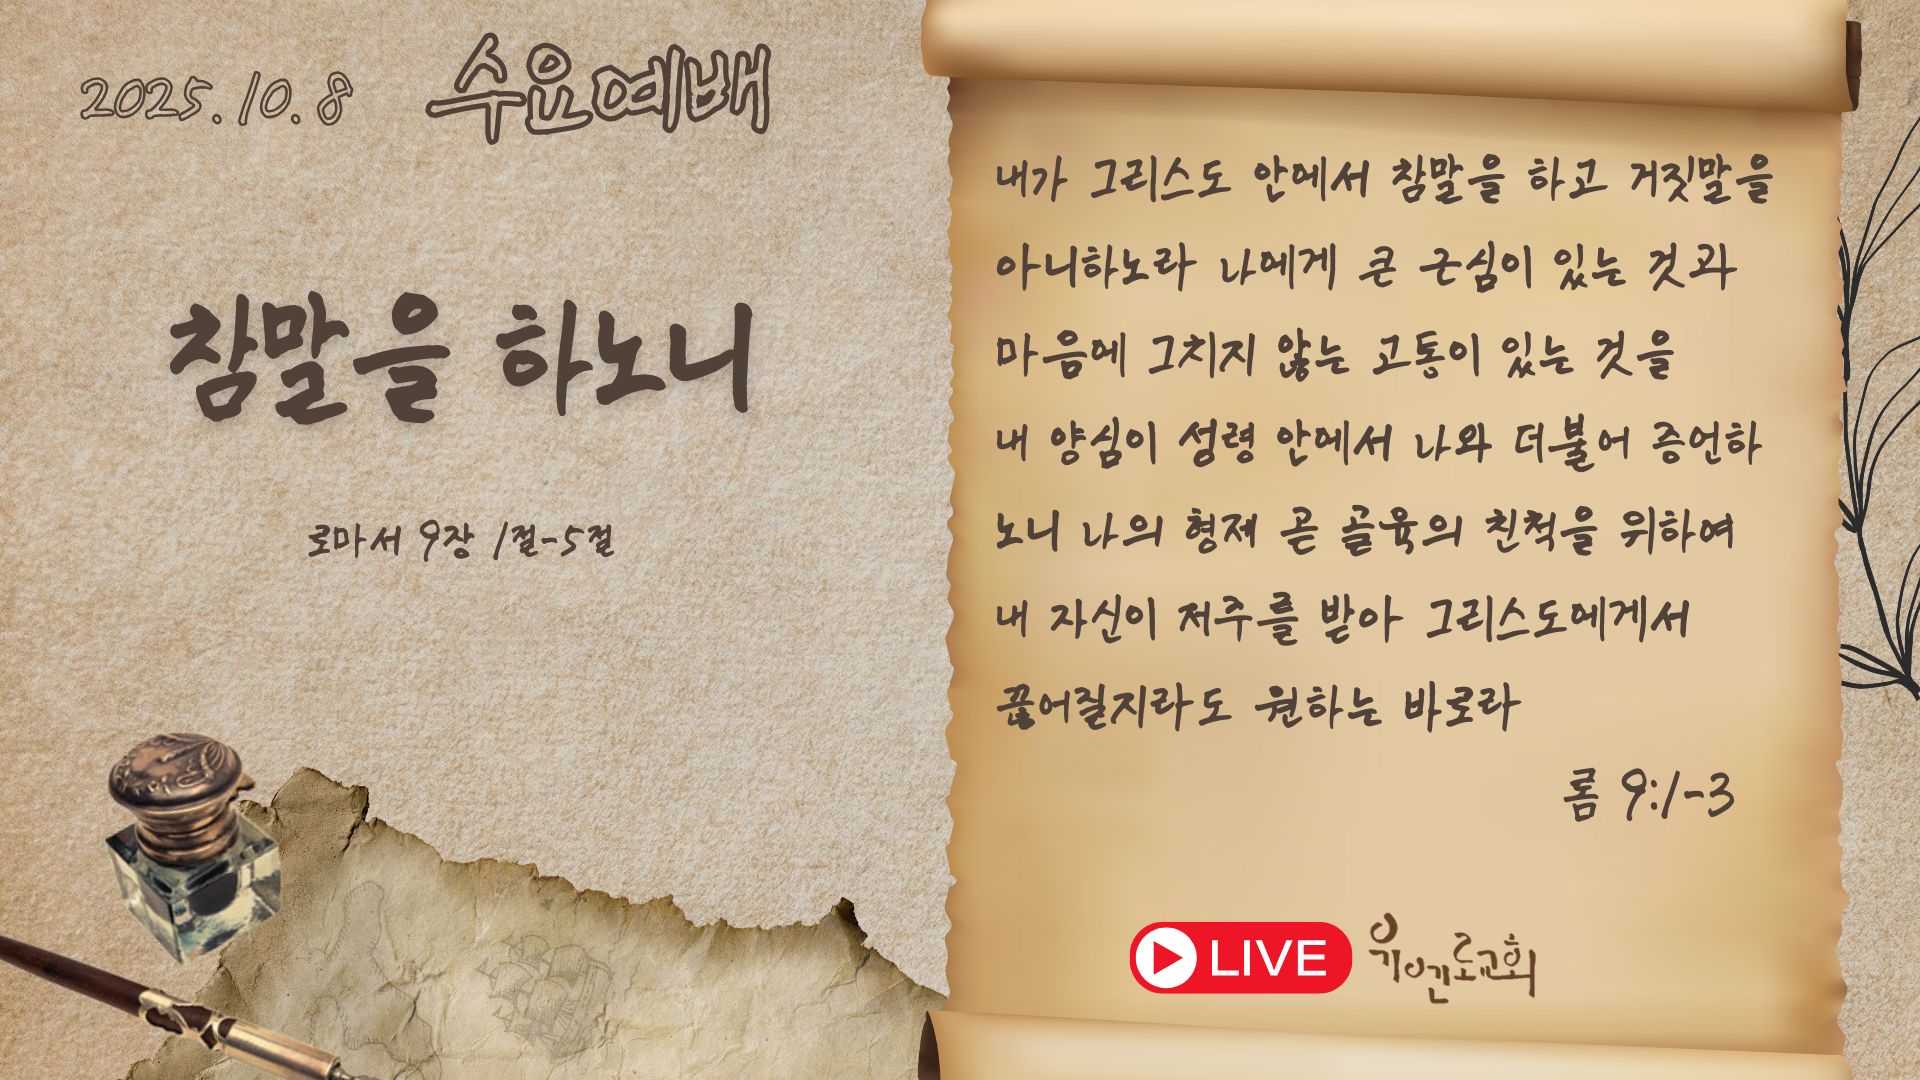 2025.10.8
수요예배
참말을 하노니
로마서 9장 1절-5절
내가 그리스도 안에서 참말을 하고 거짓말을
아니하노라 나에게 큰 근심이 있는 것과
마음에 그치지 않는 고통이 있는 것을
내 양심이 성령 안에서 나와 더불어 증언하
노니 나의 형제 곧 골육의 친척을 위하여
내 자신이 저주를 받아 그리스도에게서
끊어질지라도 원하는 바로라
롬 9:1-3
LIVE